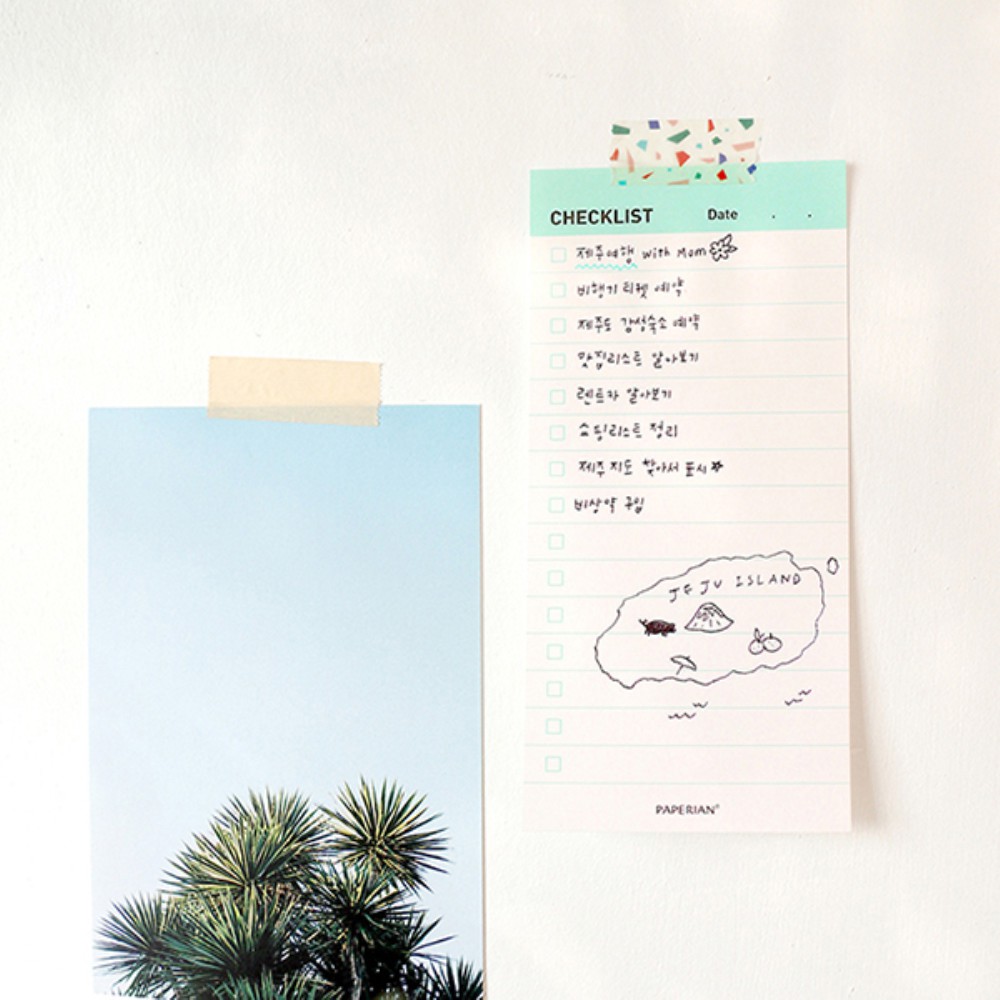 CHECKLIST Date . .
제주여행 with Mom
비행기 티켓 예약
제주도 감성숙소 예약
맛집리스트 알아보기
렌트카 알아보기
쇼핑리스트 정리
제주 지도 찾아서 표시
비상약 구입
JEJU ISLAND
PAPERIAN®